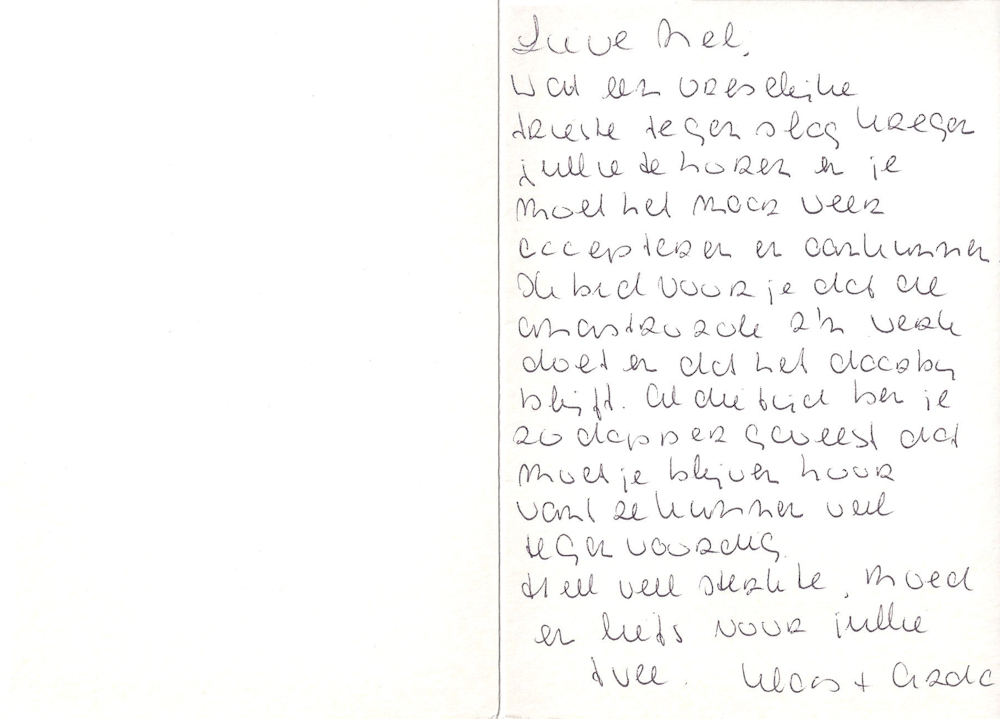 Lieve Mel,
Wat een vreselijke
trieste tegenslag kregen
jullie te horen en je
moet het maar weer
accepteren en aankunnen
Ik bid voor je dat de
anastrozole z'n werk
doet en dat het daarbij
blijft. Al die tijd ben je
zo dapper geweest dat
moet je blijven hoor
want ze kunnen veel
tegenwoordig.
Heel veel sterkte, moed
en liefs voor jullie
twee. Klaas +